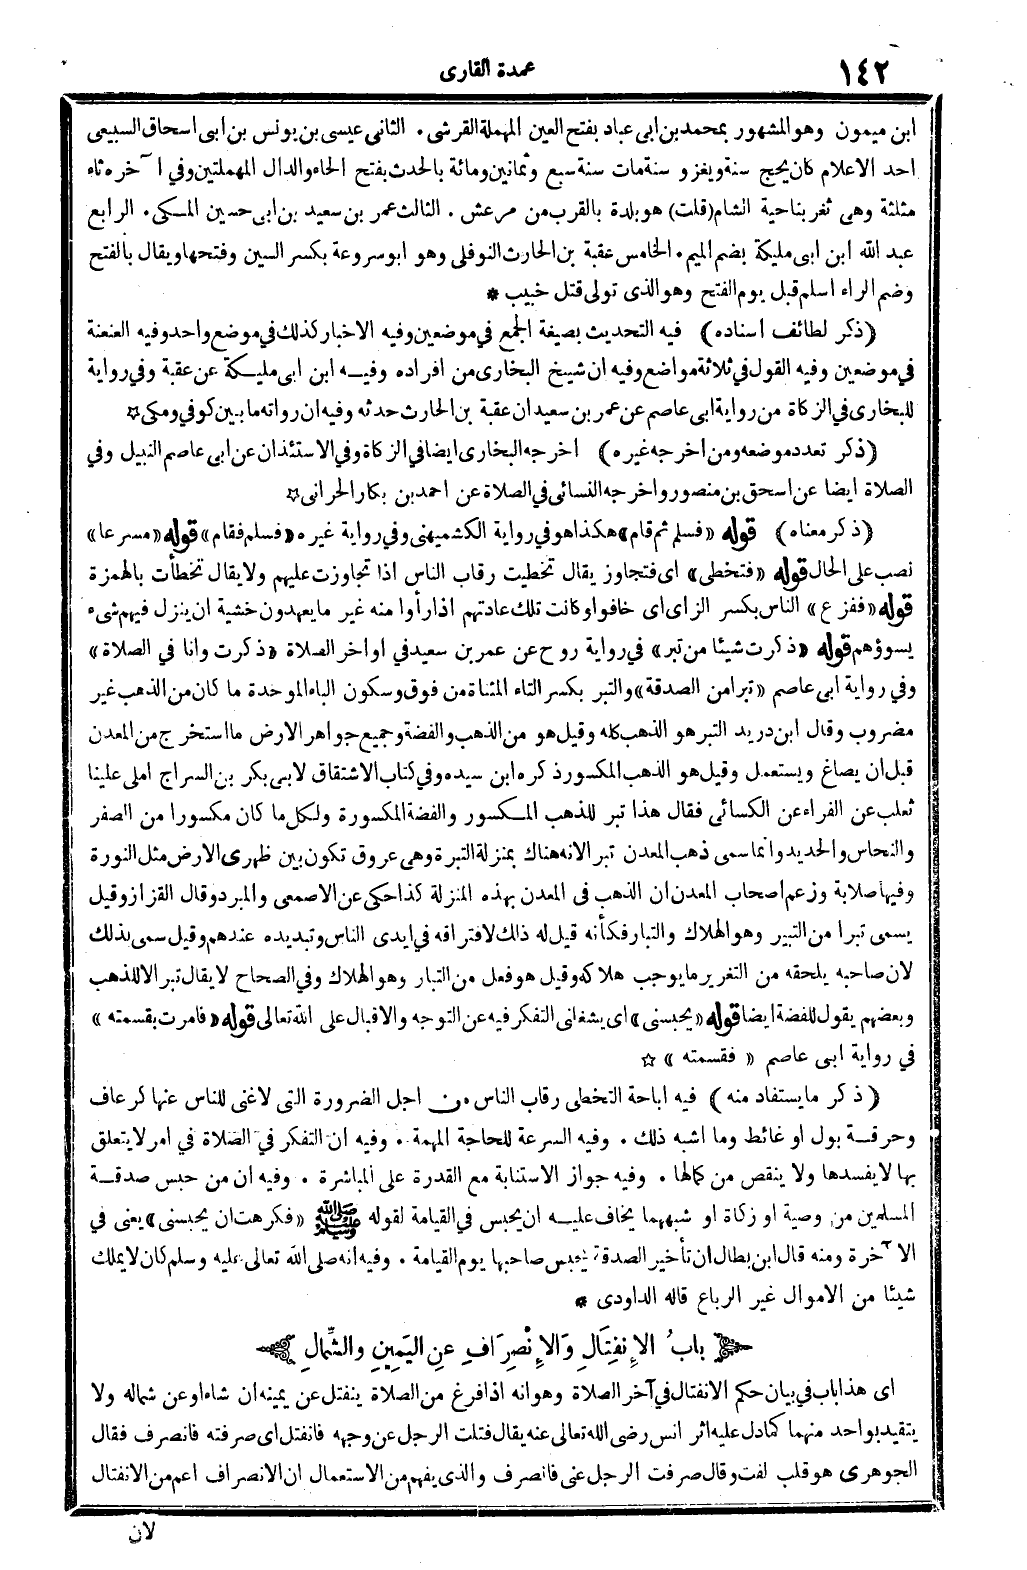 ١٤٢
عمدة القارى
ابن ميمون وهو المشهور بمحمد بن ابى عباد بفتح العين المهملة القرشى . الثانى عيسى بن يونس بن ابى اسحاق السبيعى
احد الاعلام كان يحج سنة ويغزو سنة مات سنة سبع وثمانين ومائة بالحدث بفتح الحاء والدال المهملتين وفي آخره ثاء
مثلثة وهى ثغر بناحية الشام (قلت) هو بلدة بالقرب من مرعش . الثالث عمر بن سعيد بن ابى حسين المكى . الرابع
عبد الله ابن ابى مليكة بضم الميم . الخامس عقبة بن الحارث النوفلى وهو ابو سروعة بكسر السين وفتحها ويقال بالفتح
وضم الراء اسلم قبل يوم الفتح وهو الذى تولى قتل خبيب *
(ذكر لطائف اسناده) فيه التحديث بصيغة الجمع في موضعين وفيه الاخبار كذلك في موضع واحد وفيه العنعنة
في موضعين وفيه القول في ثلاثة مواضع وفيه ان شيخ البخارى من افراده وفيه ابن ابى مليكة عن عقبة وفي رواية
للبخارى في الزكاة من رواية ابى عاصم عن عمر بن سعيد ان عقبة بن الحارث حدثه وفيه ان رواته ما بين كوفي ومكى ☆
(ذكر تعدد موضعه ومن اخرجه غيره) اخرجه البخارى ايضا في الزكاة وفي الاستئذان عن ابى عاصم النبيل وفي
الصلاة ايضا عن اسحق بن منصور واخرجه النسائى في الصلاة عن احمد بن بكار الحرانى ☆
(ذكر معناه) قوله «فسلم ثم قام» هكذا هو في رواية الكشميهنى وفي رواية غيره «فسلم فقام» قوله «مسرعا»
نصب على الحال قوله «فتخطى» اى فتجاوز يقال تخطيت رقاب الناس اذا تجاوزت عليهم ولا يقال تخطأت بالهمزة
قوله «ففزع» الناس بكسر الزاى اى خافوا وكانت تلك عادتهم اذا رأوا منه غير ما يعهدون خشية ان ينزل فيهم شىء
يسوؤهم قوله «ذكرت شيئا من تبر» في رواية روح عن عمر بن سعيد في اواخر الصلاة «ذكرت وانا في الصلاة»
وفي رواية ابى عاصم «تبرا من الصدقة» والتبر بكسر التاء المثناة من فوق وسكون الباء الموحدة ما كان من الذهب غير
مضروب وقال ابن دريد التبر هو الذهب كله وقيل هو من الذهب والفضة وجميع جواهر الارض ما استخرج من المعدن
قبل ان يصاغ ويستعمل وقيل هو الذهب المكسور ذكره ابن سيده وفي كتاب الاشتقاق لابى بكر بن السراج املى علينا
ثعلب عن الفراء عن الكسائى فقال هذا تبر للذهب المكسور والفضة المكسورة ولكل ما كان مكسورا من الصفر
والنحاس والحديد وانما سمى ذهب المعدن تبرا لانه هناك بمنزلة التبرة وهى عروق تكون بين ظهرى الارض مثل النورة
وفيها صلابة وزعم اصحاب المعدن ان الذهب فى المعدن بهذه المنزلة كذا حكى عن الاصمعى والمبرد وقال القزاز وقيل
يسمى تبرا من التبير وهو الهلاك والتبار فكأنه قيل له ذلك لافتراقه في ايدى الناس وتبديده عندهم وقيل سمى بذلك
لان صاحبه يلحقه من التغرير ما يوجب هلاكه وقيل هو فعل من التبار وهو الهلاك وفي الصحاح لا يقال تبر الا للذهب
وبعضهم يقول للفضة ايضا قوله «يحبسنى» اى يشغلنى التفكر فيه عن التوجه والاقبال على الله تعالى قوله «فامرت بقسمته»
في رواية ابى عاصم « فقسمته » ☆
(ذكر ما يستفاد منه) فيه اباحة التخطى رقاب الناس من اجل الضرورة التى لا غنى للناس عنها كرعاف
وحرقة بول او غائط وما اشبه ذلك . وفيه السرعة للحاجة المهمة . وفيه ان التفكر في الصلاة في امر لا يتعلق
بها لا يفسدها ولا ينقص من كمالها . وفيه جواز الاستنابة مع القدرة على المباشرة . وفيه ان من حبس صدقة
المسلمين من وصية او زكاة او شبههما يخاف عليه ان يحبس في القيامة لقوله ﷺ «فكرهت ان يحبسنى» يعنى في
الآخرة ومنه قال ابن بطال ان تأخير الصدقة يحبس صاحبها يوم القيامة . وفيه انه صلى الله تعالى عليه وسلم كان لا يملك
شيئا من الاموال غير الرباع قاله الداودى *
بابُ الاِنفِتَالِ وَالاِنْصِرَافِ عنِ اليَمِينِ والشِّمالِ
اى هذا باب في بيان حكم الانفتال في آخر الصلاة وهو انه اذا فرغ من الصلاة ينفتل عن يمينه ان شاء او عن شماله ولا
يتقيد بواحد منهما كما دل عليه اثر انس رضى الله تعالى عنه يقال فتلت الرجل عن وجهه فانفتل اى صرفته فانصرف فقال
الجوهرى هو قلب لفت وقال صرفت الرجل عنى فانصرف والذى يفهم من الاستعمال ان الانصراف اعم من الانفتال
لان